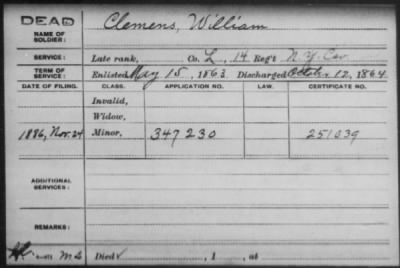 DEAD
NAME OF SOLDIER: Clemens, William
SERVICE: Late rank, Co. L, 14 Reg't N.Y. Cav
TERM OF SERVICE: Enlisted May 15, 1863 Discharged October 12, 1864
DATE OF FILING. CLASS. APPLICATION NO. LAW. CERTIFICATE NO.
Invalid,
Widow,
1886, Nov. 24 Minor, 347230 251039
ADDITIONAL SERVICES:
REMARKS:
Died , 1 , at